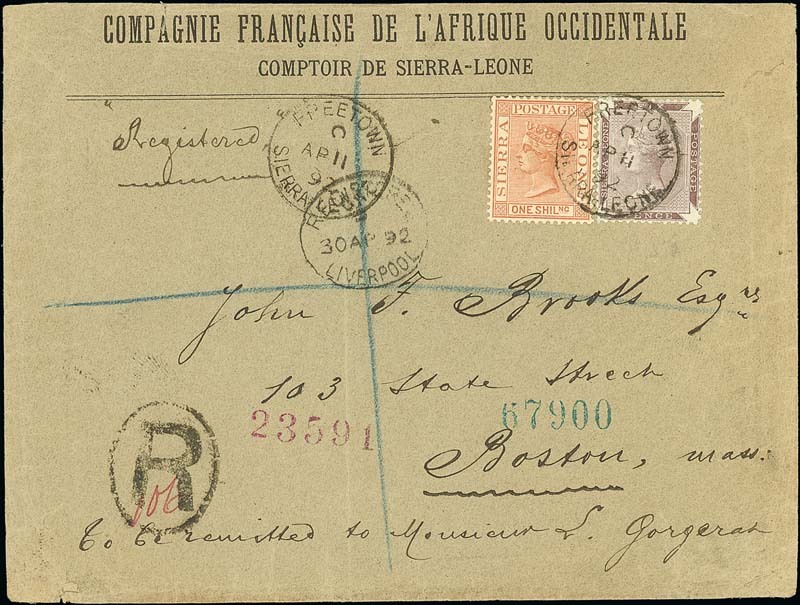 COMPAGNIE FRANÇAISE DE L'AFRIQUE OCCIDENTALE
COMPTOIR DE SIERRA-LEONE
Registered
FREETOWN
C
AP 11
92
SIERRA-LEONE
SIERRA
POSTAGE
LEONE
ONE SHILNG
FREETOWN
C
AP 11
92
SIERRA-LEONE
SIERRA LEONE
POSTAGE
PENCE
30 AP 92
LIVERPOOL
John F. Brooks Esqre
103 State Street
23591
67900
Boston, Mass.
R
106
To be remitted to Monsieur L. Gorgerat